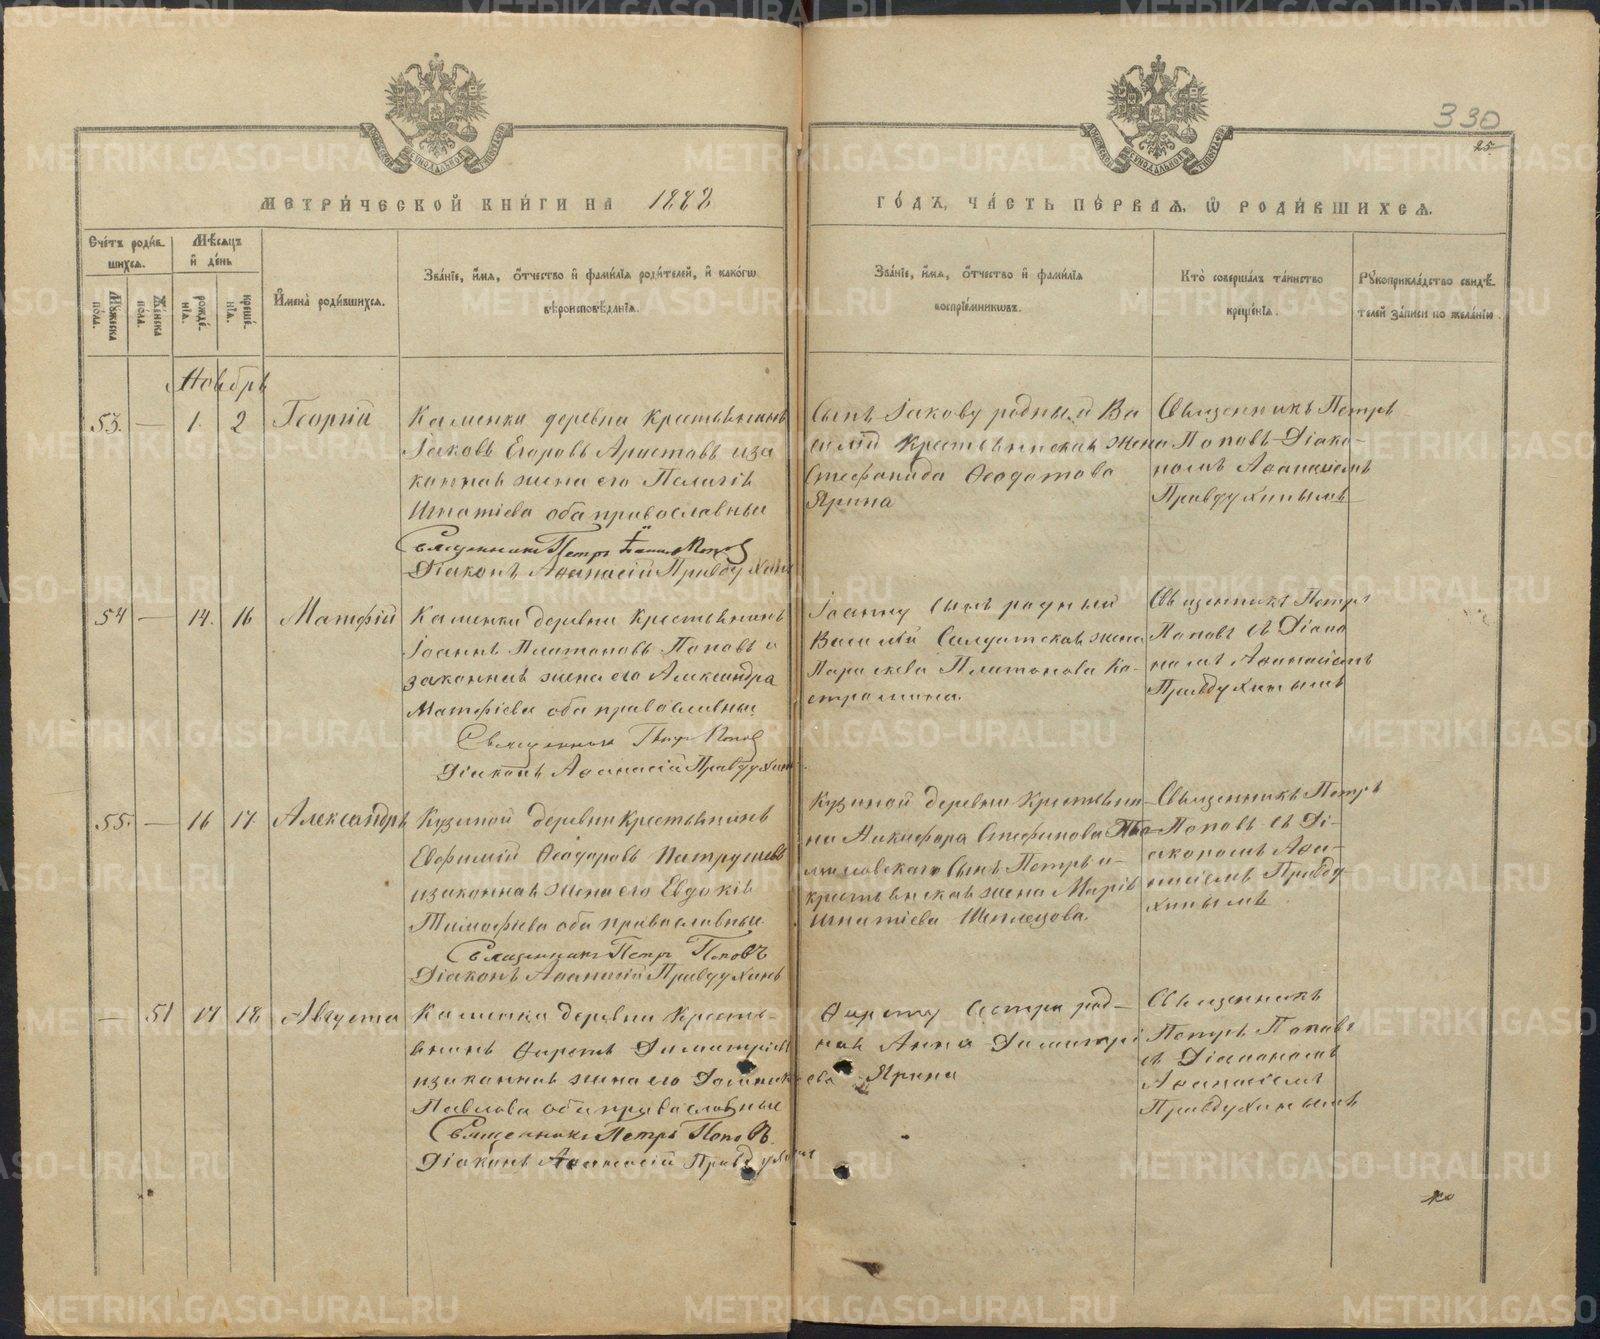 330
25
МЕТРИ́ЧЕСКОЙ КНИ́ГИ НА 1882
ГО́ДЪ, ЧА́СТЬ ПЕ́РВАѦ, Ѽ РОДИ́ВШИХСѦ.
Сче́тъ роди́в-
шихсѧ.
Мѣ́сѧцъ
и҆ де́нь
Мꙋ́жеска по́ла.
Же́нска по́ла.
рожде́-
нїѧ.
креще́-
нїѧ.
И҆мена̀ роди́вшихсѧ.
Зва́нїе, и҆́мѧ, ѻ҆́тчество и҆ фами́лїѧ роди́телей, и҆ како́гѡ
вѣроисповѣ́данїѧ.
Зва́нїе, и҆́мѧ, ѻ҆́тчество и҆ фами́лїѧ
воспрїе́мникѡвъ.
Кто̀ соверша́лъ та́инство
креще́нїѧ.
Рꙋкоприкла́дство свидѣ́-
телей за́писи по жела́нїю.
Ноябрь
53. — 1. 2 Георгій
Каменки деревни Крестьянинъ
Іаковъ Егоровъ Аристовъ и за
конная жена его Пелагія
Игнатіева оба православные
Священникъ Петръ Попов
Діаконъ Аѳанасій Правдухинъ
Сынъ Іакову родный Ва
силій Крестьянская жена
Стефанида Ѳеодотова
Ярина
Священникъ Петръ
Поповъ Діако-
номъ Аѳанасіемъ
Правдухинымъ
54 — 14. 16 Матфій
Каменки деревни Крестьянинъ
Іоаннъ Платоновъ Поповъ и
законная жена его Александра
Матфіева оба православные
Священник Петръ Попов
Діаконъ Аѳанасій Правдухинъ
Іоанну сынъ родный
Василій Салдатская жена
Параскева Платонова Ко-
стромина.
Священникъ Петръ
Поповъ съ Діако
номъ Аѳанасіемъ
Правдухинымъ
55. — 16 17 Александръ
Кузиной деревни Крестьянинъ
Евфимій Ѳеодоровъ Патрушевъ
и законная жена его Евдокія
Тимофеева оба православные
Священникъ Петръ Поповъ
Діаконъ Аѳанасій Правдухинъ
Кузиной деревни Крестьяни-
на Никифора Стефанова
сынъ Петръ и
крестьянская жена Марія
Игнатіева
Священникъ Петръ
Поповъ съ Ді-
акономъ Аѳа-
насіемъ Правду
хинымъ
— 51 17 18 Августа
Каменки деревни Кресть-
янинъ Ѳирсъ Димитріевъ
и законная жена его
Павлова оба православные
Священникъ Петръ Поповъ.
Діаконъ Аѳанасій Правдухинъ
Ѳирсу Сестра род-
ная Анна Димитрі
ева Ярина
Священникъ
Петръ Поповъ
съ Діакономъ
Аѳанасіемъ
Правдухинымъ
METRIKI.GASO-URAL.RU